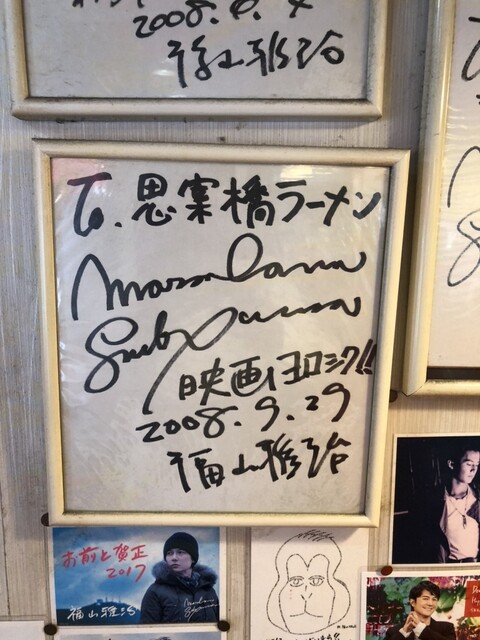 2008.
福山雅治
To.思案橋ラーメン
Masaharu
Fukuyama
映画ヨロシク!!
2008.9.29
福山雅治
お前と賀正
2017
福山雅治